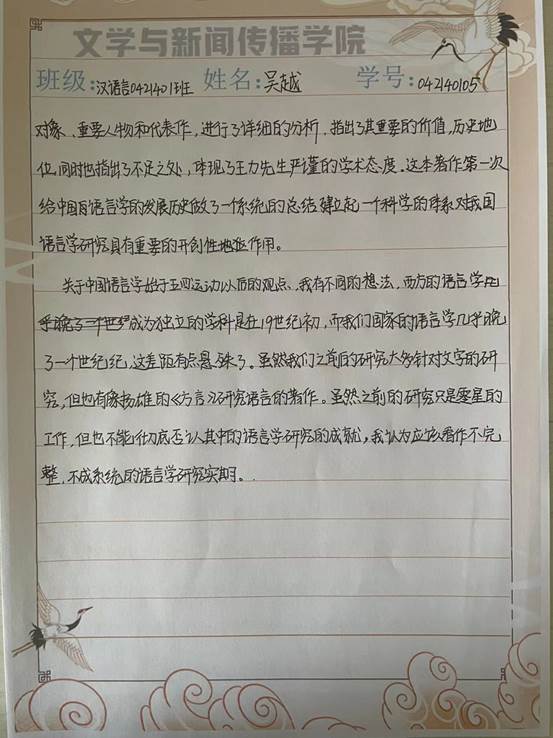 文学与新闻传播学院
班级:汉语言0421401班 姓名:吴越 学号:042140105
对象、重要人物和代表作,进行了详细的分析,指出了其重要的价值,历史地
位,同时也指出了不足之处,体现了王力先生严谨的学术态度。这本著作第一次
给中国语言学的发展历史做了一个系统的总结,建立起一个科学的体系,对我国
语言学研究具有重要的开创性作用。
关于中国语言学始于五四运动以后的观点,我有不同的想法,西方的语言学
成为独立的学科是在19世纪初,而我们国家的语言学几乎晚
了一个世纪纪,这差距有点悬殊了。虽然我们之前的研究大多针对文字的研
究,但也有像扬雄的《方言》研究语言的著作。虽然之前的研究只是零星的
工作,但也不能彻底否认其中的语言学研究的成就,我认为应该看作不完
整,不成系统的语言学研究实期。